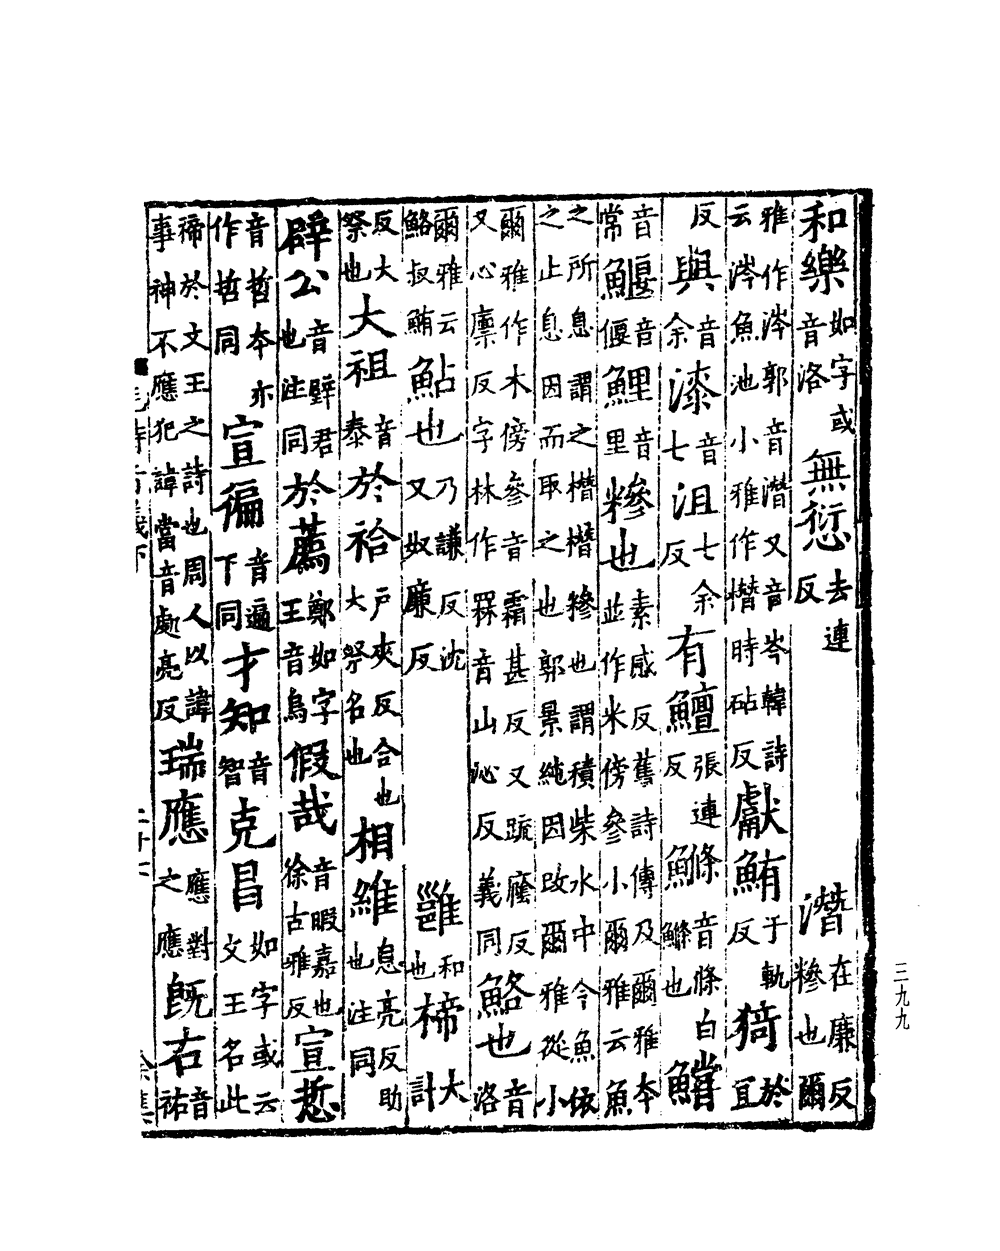 和樂如字或音洛無愆去連反潛在廉反糝也爾
雅作涔郭音潛又音岑韓詩云涔魚池小雅作橬時砧反獻鮪于軌反猗於宜
反與音余漆音七沮七余反有鱣張連反鰷音條白鰷也鱨
音常鰋音偃鯉音里糝也素感反舊詩傳及爾雅本並作米傍參小爾雅云魚
之所息謂之橬橬糝也謂積柴水中令魚依之止息因而取之也郭景純因改爾雅從小
爾雅作木傍參音霜甚反又疏廕反又心廩反字林作罧音山沁反義同鮥也音洛
爾雅云鮥叔鮪鮎也乃謙反沈又奴廉反雝和也禘大計
反大祭也大祖音泰於祫戶夾反合也大祭名也相維息亮反助也注同
辟公音璧君也注同於薦鄭如字王音烏假哉音暇嘉也徐古雅反宣悊
音哲本亦作哲同宣徧音遍下同才知音智克昌如字或云文王名此
禘於文王之詩也周人以諱事神不應犯諱當音處亮反瑞應應對之應既右音祐
三九九